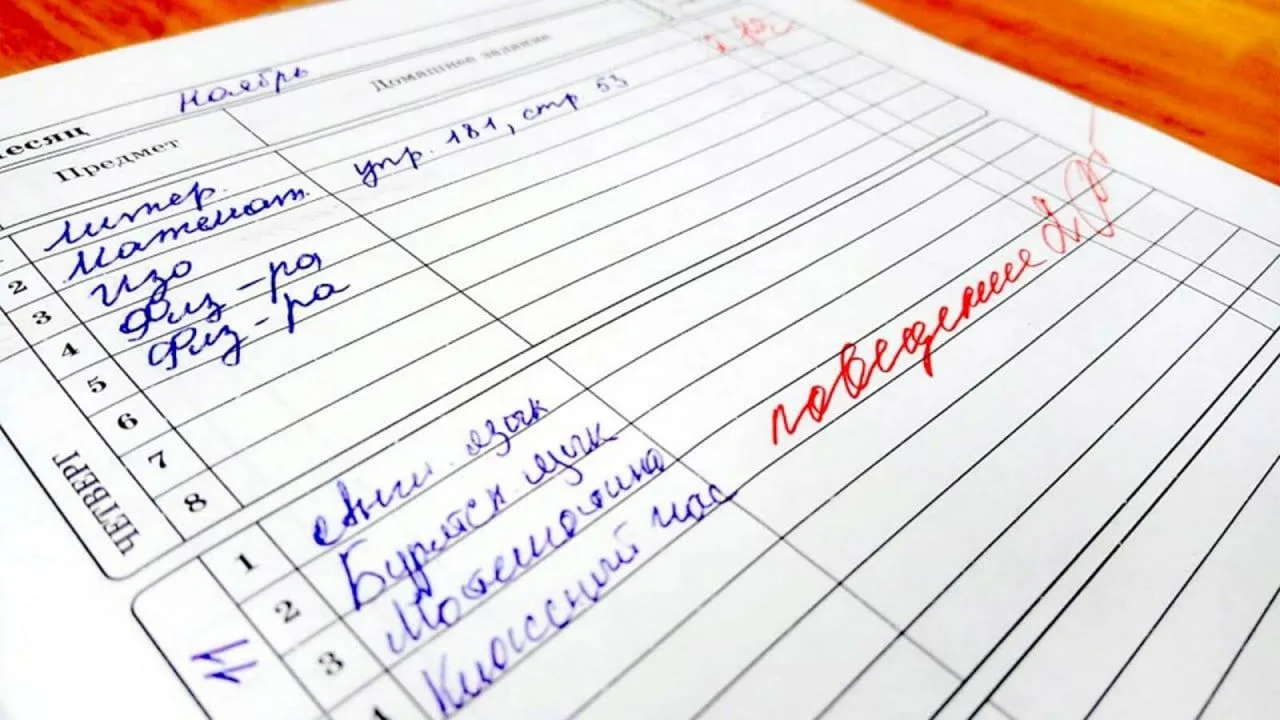 Месяц ноябрь
Предмет Домашнее задание
Литер.
2 Математ. упр. 181, стр 53
3 Изо
4 Физ-ра
5 Физ-ра
6
7
8
ЧЕТВЕРГ
1 Англ. язык
2 Бурятск. язык поведение
3 Математика
4 Классный час
11